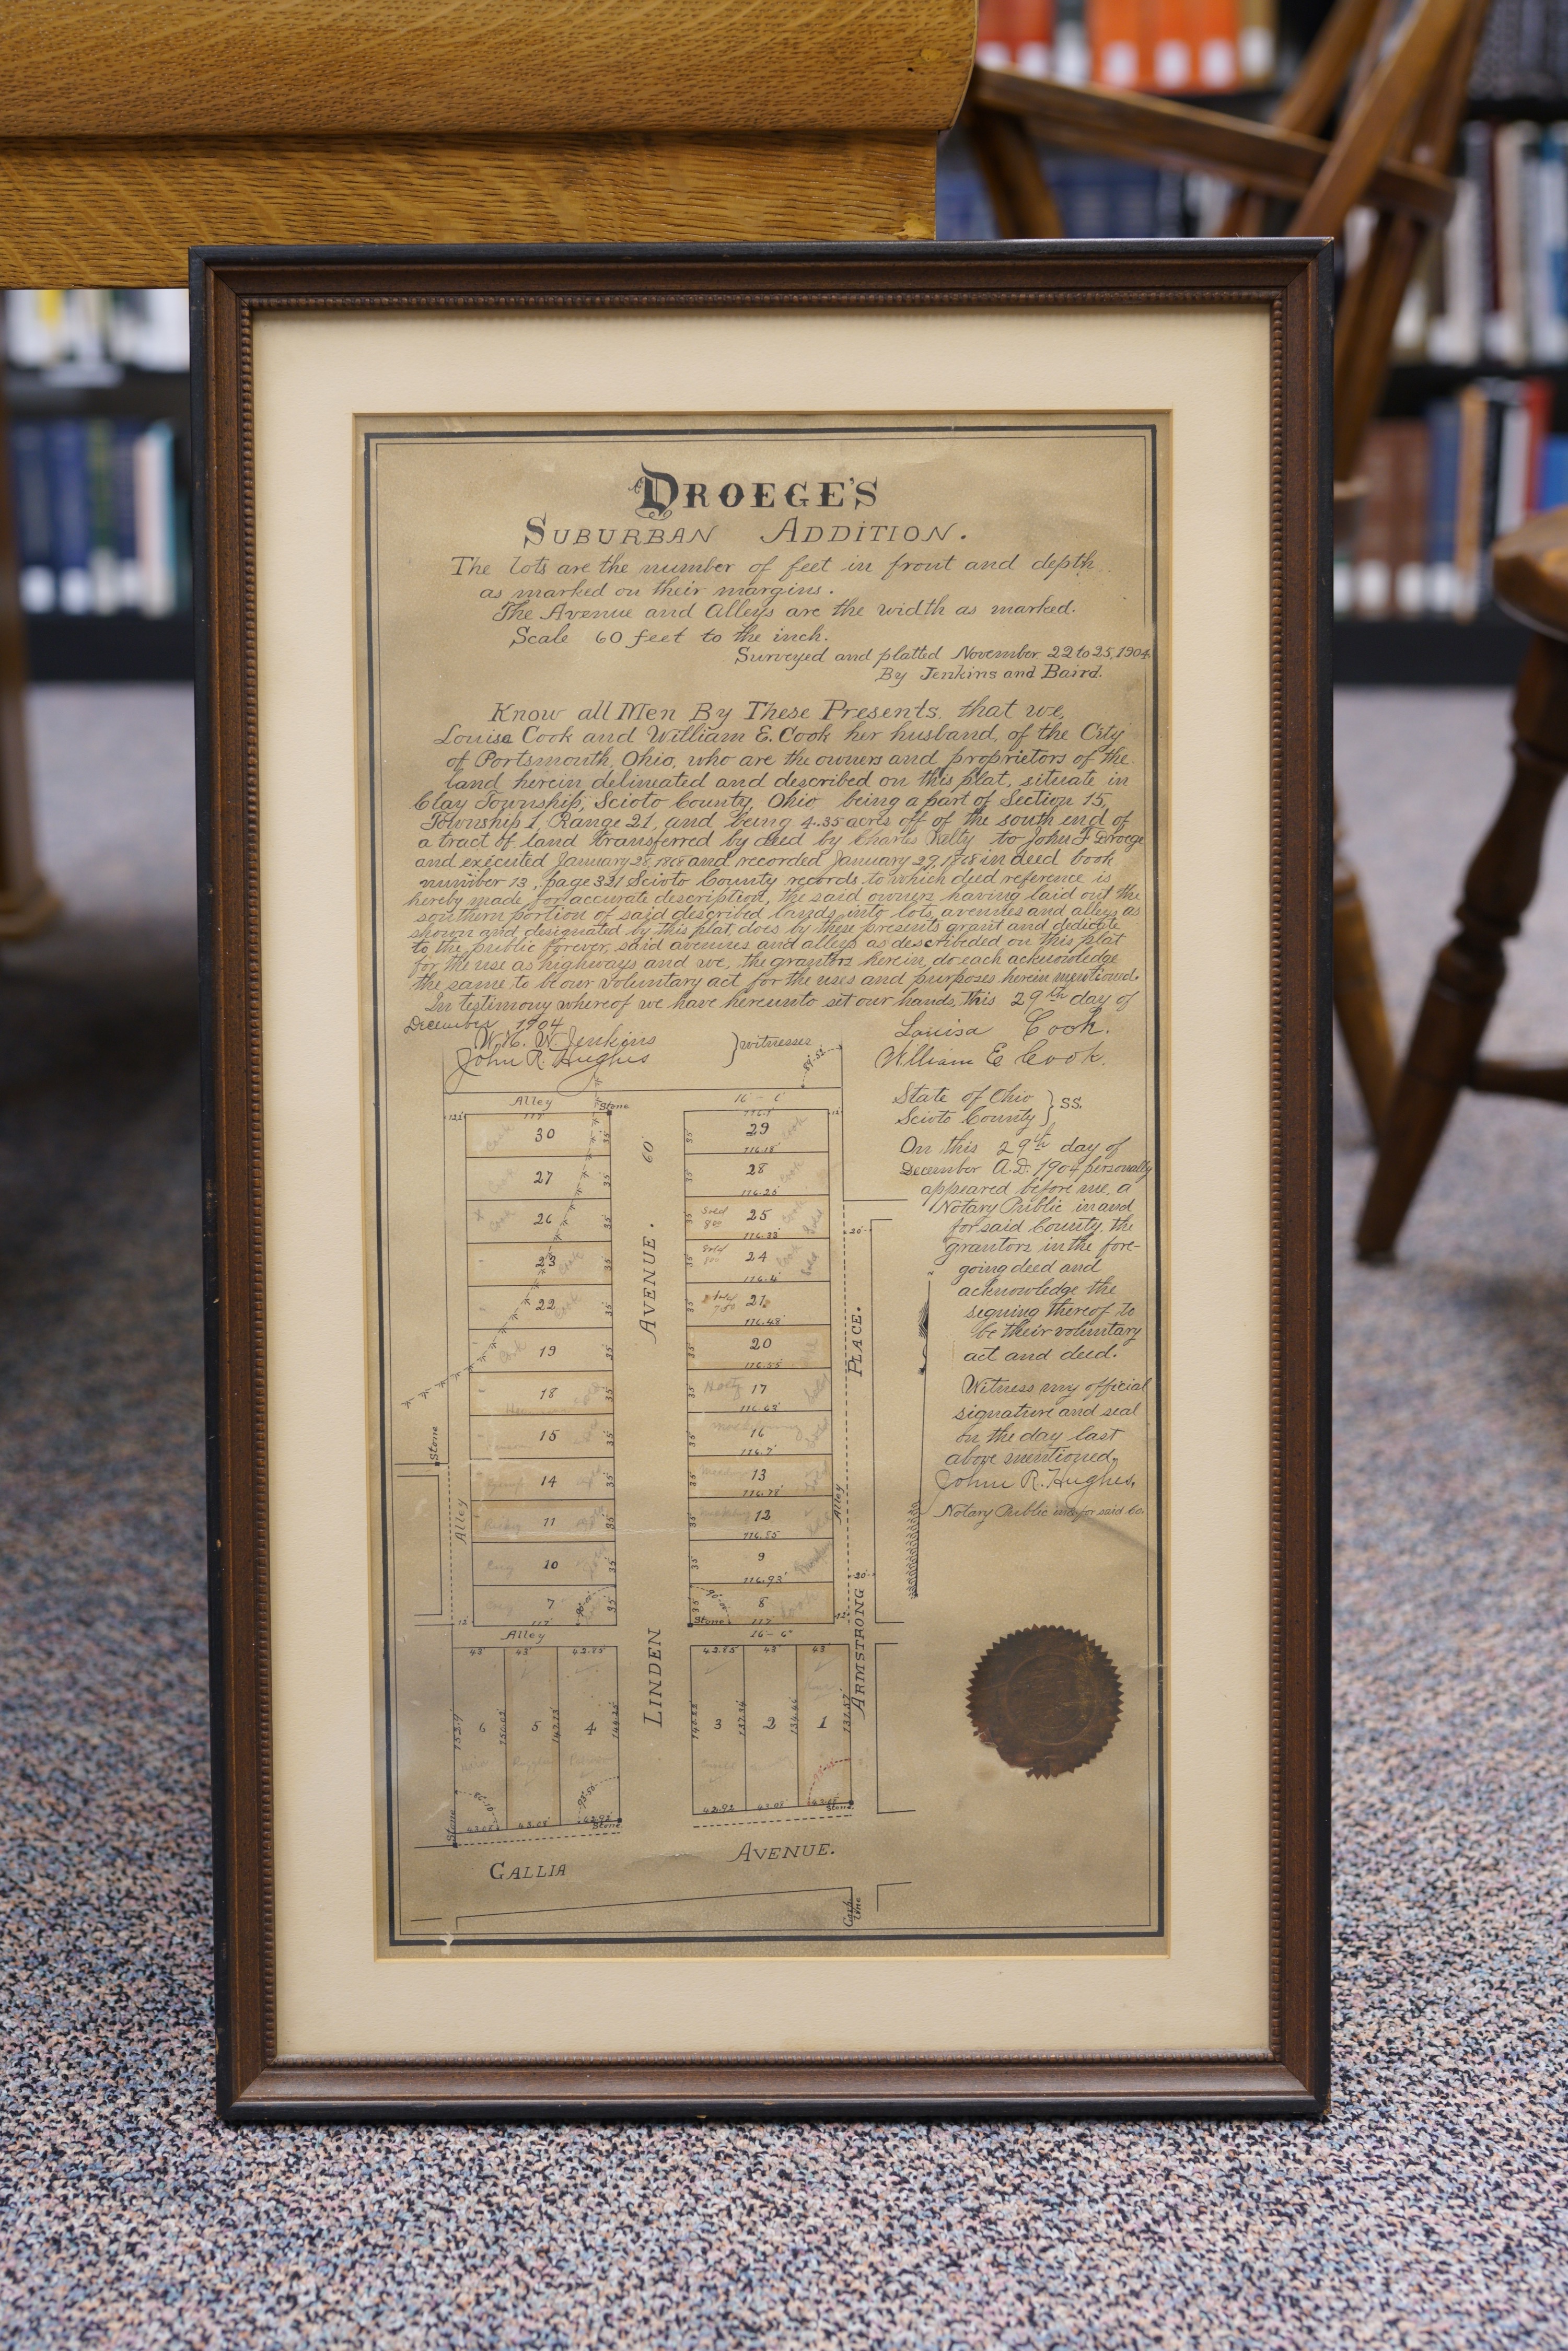 DROEGE'S
SUBURBAN ADDITION.
The lots are the number of feet in front and depth
as marked on their margins.
The Avenue and Alleys are the width as marked.
Scale 60 feet to the inch.
Surveyed and platted November 22 to 25, 1904
By Jenkins and Baird.
Know all Men By These Presents, that we,
Louisa Cook and William E. Cook her husband, of the City
of Portsmouth, Ohio, who are the owners and proprietors of the
land herein delineated and described on this plat, situate in
Clay Township, Scioto County, Ohio being a part of Section 15,
Township 1, Range 21, and being 4.35 acres off of the south end of
a tract of land transferred by deed by Charles Kelty to John F Droege
and executed January 28, 1868 and recorded January 29, 1868 in deed book
number 13, page 321 Scioto County records, to which deed reference is
hereby made for accurate description, the said owners having laid out the
southern portion of said described lands into lots, avenues and alleys as
shown and designated by this plat, does by these presents grant and dedicate
to the public forever, said avenues and alleys as describeded on this plat
for the use as highways and we, the grantors herein, do each acknowledge
the same to be our voluntary act for the uses and purposes herein mentioned.
In testimony whereof we have hereunto set our hands, this 29th day of
December, 1904
W. H. W. Jenkins
John R. Hughes
} witnesses
Louisa Cook.
William E Cook.
State of Ohio
Scioto County } SS.
On this 29th day of
December A.D. 1904 personally
appeared before me, a
Notary Public in and
for said County, the
grantors in the fore-
going deed and
acknowledge the
signing thereof to
be their voluntary
act and deed.
Witness my official
signature and seal
on the day last
above mentioned.
John R. Hughes,
Notary Public in & for said Co.
Alley
117'
Stone
16'-6'
12'
116.1'
12'
30
35
35
29
116.18'
27
35
35
28
116.25'
26
35
35
Sold
800
25
Cook
Sold
116.33'
20'
23
Cook
35
35
Sold
24
Cook
Sold
116.4'
22
Cook
35
35
21
116.48'
19
Cook
35
35
20
116.55'
18
35
35
17
116.63'
15
35
35
16
116.7'
14
35
35
13
116.78'
11
35
35
12
116.85'
10
35
35
9
116.93'
20'
7
35
35
8
117'
Stone
117'
12'
12'
Stone
Alley
Alley
AVENUE. 60'
LINDEN
PLACE.
ARMSTRONG
Alley
Alley
16'-6"
43' 43' 42.85' 42.85' 43' 43'
6 5 4 3 2 1
43.08' 43.08' 42.92' 42.92 43.08'
Stone
Stone
Stone
GALLIA AVENUE.